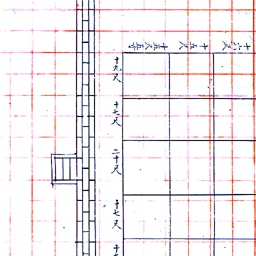 十六尺
十五尺
十五尺五寸
十九尺
十七尺
二十尺
十七尺